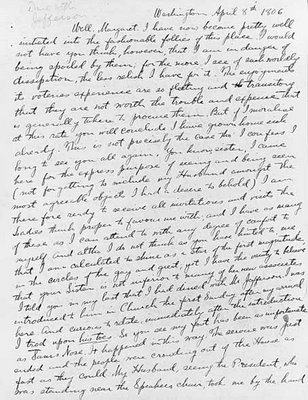 Washington April 8th 1806
Well, Margaret, I have now become pretty well
initiated into the fashionable follies of this place. I would
not have you think, however, that I am in danger of
being spoiled by them, for the more I see of such worldly
dissipation, the less relish I have for it. The enjoyments
its votaries experience are so fleeting and transitory
that they are not worth the trouble and expense that
is generally taken to procure them. But if I moralize
at this rate you will conclude I have grown home sick
already. This is not precisely the case tho' I confess I
long to see you all again. You know, sister, I came
here for the express purpose of seeing and being seen
(not forgetting to include my Husband amongst the
most agreeable objects I had a desire to behold) I am
there fore ready to receive all invitations and visits the
Ladies think proper to favour me with, and I have as many
of these as I can attend to with any degree of comfort to
myself and altho I do not think as you had hinted to me
that I am calculated to shine as a star of the first magnitude
in the circles of the gay and great, yet I have the vanity to believe
that your sister is not inferior to many of her new associates
I told you in my last that I had dined with Mr Jefferson. I was
introduced to him in Church the first Sunday after my arrival
here And curious to relate, immediately after the introduction
I trod upon his toes. So you see my foot has been as unfortunate
as Tom's Nose. It happened in this way. The service was just
ended and the people were crouding out of the House as
fast as they could. My Husband, seeing the President, who
was standing near the Speakers chair, took me by the hand